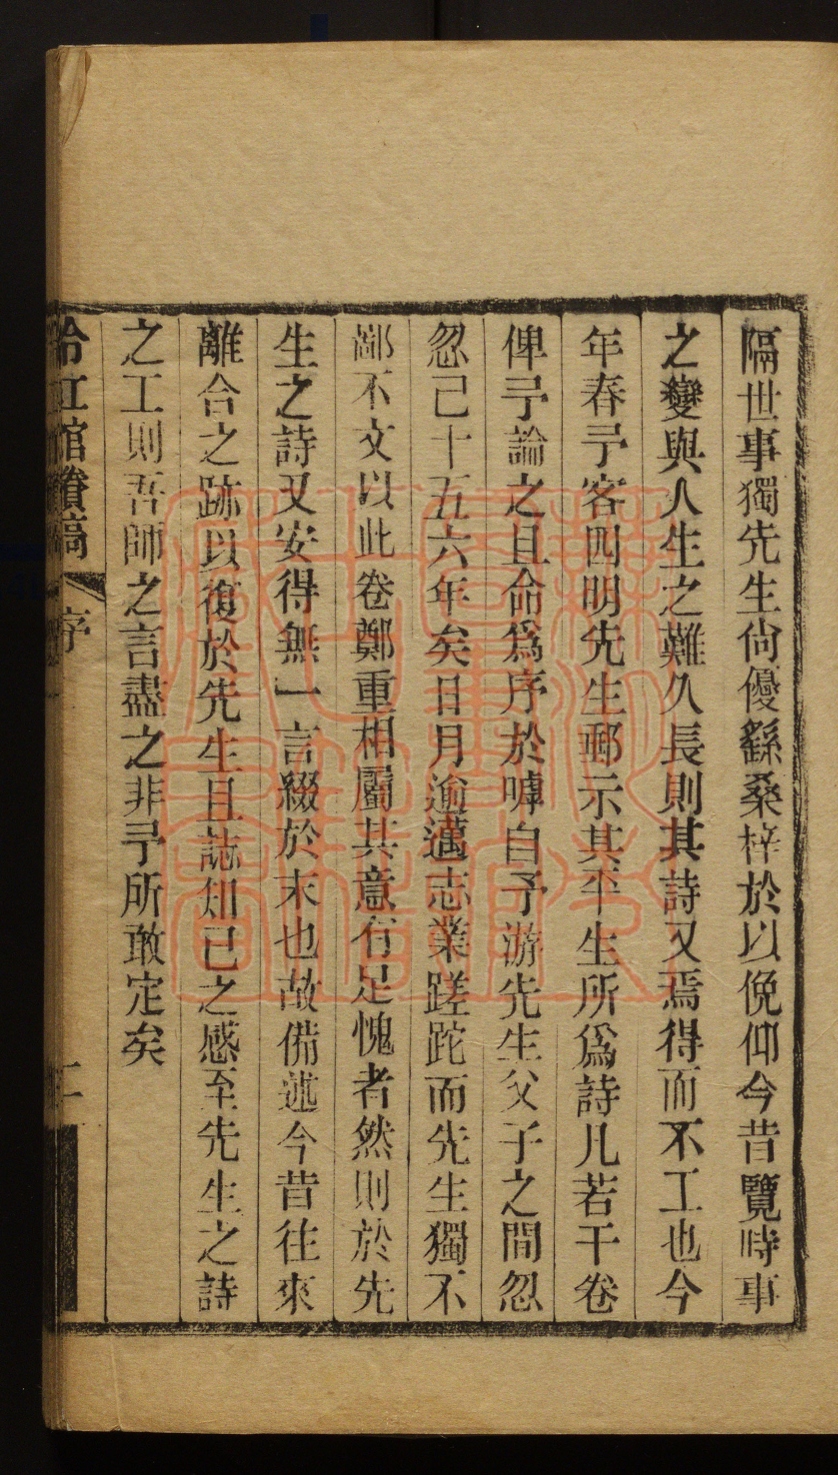 隔世事獨先生尙優繇桑梓於以俛仰今昔覽時事
之變與人生之難久長則其詩又焉得而不工也今
年春予客四明先生郵示其平生所爲詩凡若干卷
俾予論之且命爲序於嘑自予游先生父子之間忽
忽已十五六年矣日月逾邁志業蹉跎而先生獨不
鄙不文以此卷鄭重相屬其意有足愧者然則於先
生之詩又安得無一言綴於末也故備述今昔往來
離合之跡以復於先生且誌知己之感至先生之詩
之工則吾師之言盡之非予所敢定矣
冷紅館賸稿 序 二